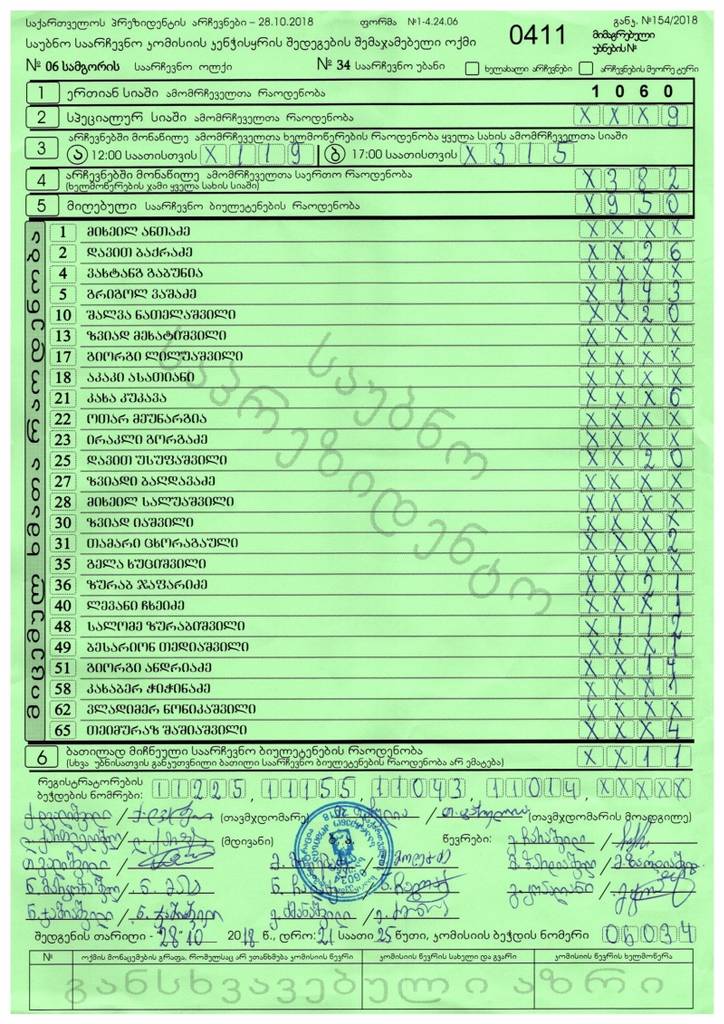 საქართველოს პრეზიდენტის არჩევნები – 28.10.2018 ფორმა №1-4.24.06 განკ. №154/2018
საუბნო საარჩევნო კომისიის კენჭისყრის შედეგების შემაჯამებელი ოქმი 0411 მიმაგრებული უბნების№
№ 06 სამგორის საარჩევნო ოლქი № 34 საარჩევნო უბანი ხელახალი არჩევნები არჩევნების მეორე ტური
1 ერთიან სიაში ამომრჩეველთა რაოდენობა 1060
2 სპეციალურ სიაში ამომრჩეველთა რაოდენობა XXX9
3 არჩევნებში მონაწილე ამომრჩეველთა ხელმოწერების რაოდენობა ყველა სახის ამომრჩეველთა სიაში
ა 12:00 საათისთვის X119 ბ 17:00 საათისთვის X315
4 არჩევნებში მონაწილე ამომრჩეველთა საერთო რაოდენობა X382
(ხელმოწერების ჯამი ყველა სახის სიაში)
5 მიღებული საარჩევნო ბიულეტენების რაოდენობა X950
მიცემულ ხმათა რაოდენობა
1 მიხეილ ანთაძე XXXX
2 დავით ბაქრაძე XX26
4 ვახტანგ გაბუნია XXXX
5 გრიგოლ ვაშაძე X143
10 შალვა ნათელაშვილი XX20
13 ზვიად მეხატიშვილი XXXX
17 გიორგი ლილუაშვილი XXXX
18 აკაკი ასათიანი XXXX
21 კახა კუკავა XXX6
22 ოთარ მეუნარგია XXXX
23 ირაკლი გორგაძე XXXX
25 დავით უსუფაშვილი XX20
27 ზვიადი ბაღდავაძე XXXX
28 მიხეილ სალუაშვილი XXXX
30 ზვიად იაშვილი XXXX
31 თამარი ცხორაგაული XXX2
35 გელა ხუციშვილი XXXX
36 ზურაბ ჯაფარიძე XX21
40 ლევანი ჩხეიძე XXX1
48 სალომე ზურაბიშვილი X112
49 ბესარიონ თედიაშვილი XXX1
51 გიორგი ანდრიაძე XX14
58 კახაბერ ჭიჭინაძე XXX1
62 ვლადიმერ ნონიკაშვილი XXXX
65 თეიმურაზ შაშიაშვილი XXX4
საუბნო
საპრეზიდენტო
6 ბათილად მიჩნეული საარჩევნო ბიულეტენების რაოდენობა XX11
(სხვა უბნისათვის განკუთვნილი ბათილი საარჩევნო ბიულეტენების რაოდენობა არ ემატება)
რეგისტრატორების
ბეჭდების ნომრები: 11225, 11155, 11043, 11014, XXXXX
(თავმჯდომარე) (თავმჯდომარის მოადგილე)
(მდივანი) წევრები:
შედგენის თარიღი - 28 10 2018 წ., დრო: 21 საათი 25 წუთი, კომისიის ბეჭდის ნომერი 06034
№ ოქმის მონაცემების გრაფა, რომელსაც არ ეთანხმება კომისიის წევრი კომისიის წევრის სახელი და გვარი კომისიის წევრის ხელმოწერა
განსხვავებული აზრი